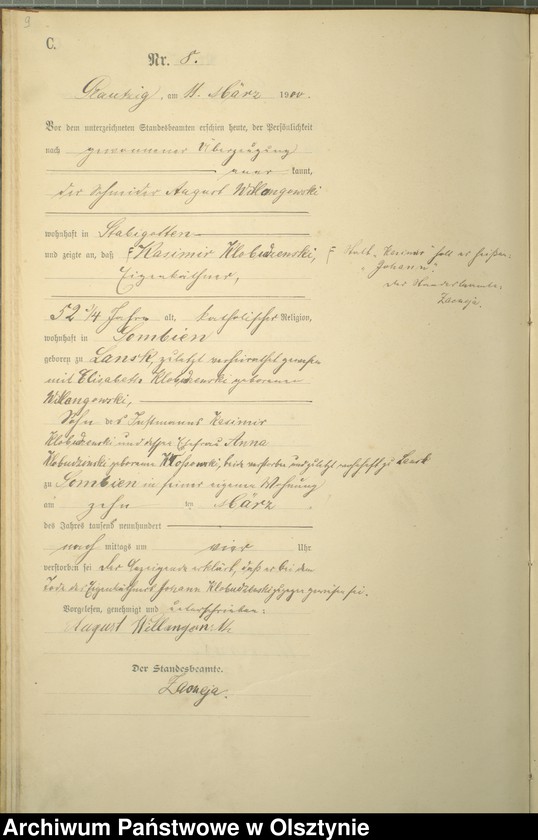 9
C.
Nr. 8.
am 11. März 1900.
Vor dem unterzeichneten Standesbeamten erschien heute, der Persönlichkeit
nach
kannt,
der Schneider August Willangowski
wohnhaft in Stabigotten
und zeigte an, daß Kasimir Klobudzewski,
Eigenkäthner,
Statt "Kasimir" soll es heißen:
"Johann".
Der Standesbeamte.
52 1/4 Jahre alt, katholischer Religion,
wohnhaft in Gombien
geboren zu Lansk, zuletzt verheirathet gewesen
mit Elisabeth Klobudzewski geborenen
Willangowski,
Sohn des Instmanns Kasimir
Klobudzewski und dessen Ehefrau Anna
Klobudzewski geborene beide verstorben und zuletzt wohnhaft zu Lansk
zu Gombien in seiner eigenen Wohnung
am zehn ten März
des Jahres tausend neunhundert
nach mittags um vier Uhr
verstorben sei. Der Anzeigende erklärt, daß er bei dem
Tode des Eigenkäthners Johann Klobudzewski zugegen gewesen sei.
Vorgelesen, genehmigt und unterschrieben:
August
Der Standesbeamte.
Archiwum Państwowe w Olsztynie